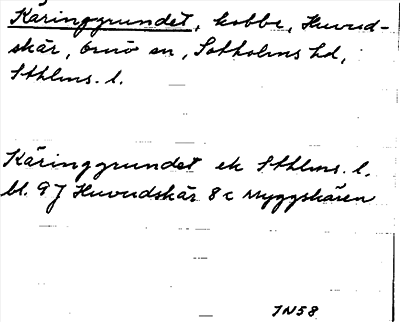 Käringgrundet, kobbe, Huvud-
skär, Ornö sn, Sotholms hd,
Sthlms. l.
Käringgrundet ek Sthlms. l.
bl. 9J Huvudskär 8c Myggskären
JN58